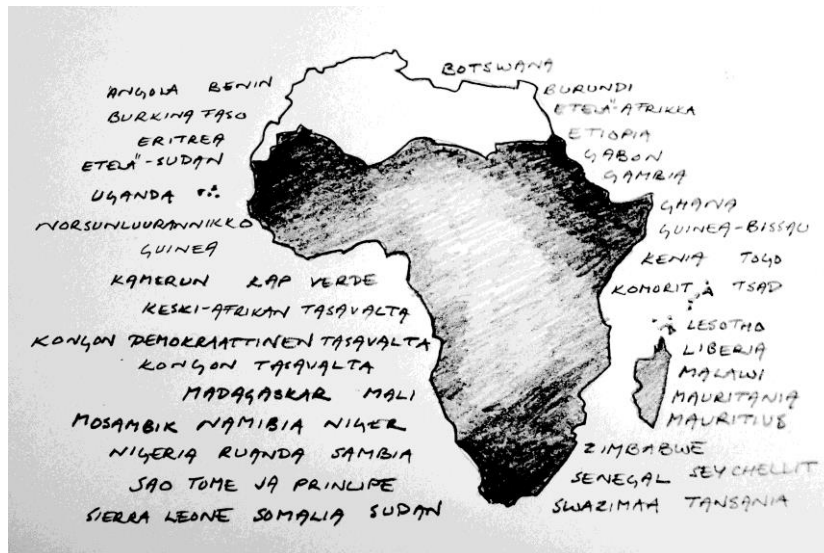 BOTSWANA
ANGOLA BENIN
BURKINA FASO
ERITREA
ETELÄ-SUDAN
UGANDA
NORSUNLUURANNIKKO
GUINEA
KAMERUN KAP VERDE
KESKI-AFRIKAN TASAVALTA
KONGON DEMOKRAATTINEN TASAVALTA
KONGON TASAVALTA
MADAGASKAR MALI
MOSAMBIK NAMIBIA NIGER
NIGERIA RUANDA SAMBIA
SAO TOME JA PRINCIPE
SIERRA LEONE SOMALIA SUDAN
BURUNDI
ETELÄ-AFRIKKA
ETIOPIA
GABON
GAMBIA
GHANA
GUINEA-BISSAU
KENIA TOGO
KOMORIT TSAD
LESOTHO
LIBERIA
MALAWI
MAURITANIA
MAURITIUS
ZIMBABWE
SENEGAL SEYCHELLIT
SWAZIMAA TANSANIA